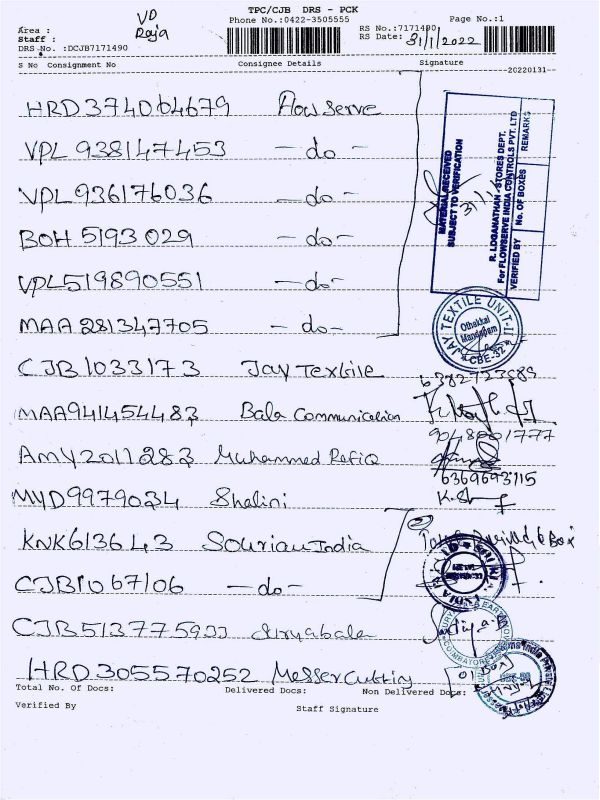 TPC/CJB DRS - PCK
VD
Raja
Phone No.:0422-3505555
Page No.:1
Area :
RS No.:7171490
Staff :
RS Date: 31/1/2022
DRS No. :DCJB7171490
S No Consignment No Consignee Details Signature
20220131
HRD374064679 Flowserve
VPL 938147453 -do-
VPL936176036 -do-
BOH 5193029 -do-
VPL519890551 -do-
MAA 281347705 -do-
MATERIAL RECEIVED
SUBJECT TO VERIFICATION
R. LOGANATHAN - STORES DEPT.
For FLOWSERVE INDIA CONTROLS PVT. LTD
VERIFIED BY No. OF BOXES REMARKS
JAY TEXTILE UNIT-II
Othakkal
Mandapam
CBE-32
CJB1033173 Jay Textile
MAA941454483 Bala Communication
9048001777
AMY2011283 Muhammed Rafiq
6369693115
MYD9979034 Shalini K.S
KNK613643 Souriau India
CJB1067106 -do-
CJB513775933 Suryabala
HRD305570252 Messer Cutting
01 Box
Total No. Of Docs: Delivered Docs: Non Delivered Docs:
Verified By Staff Signature